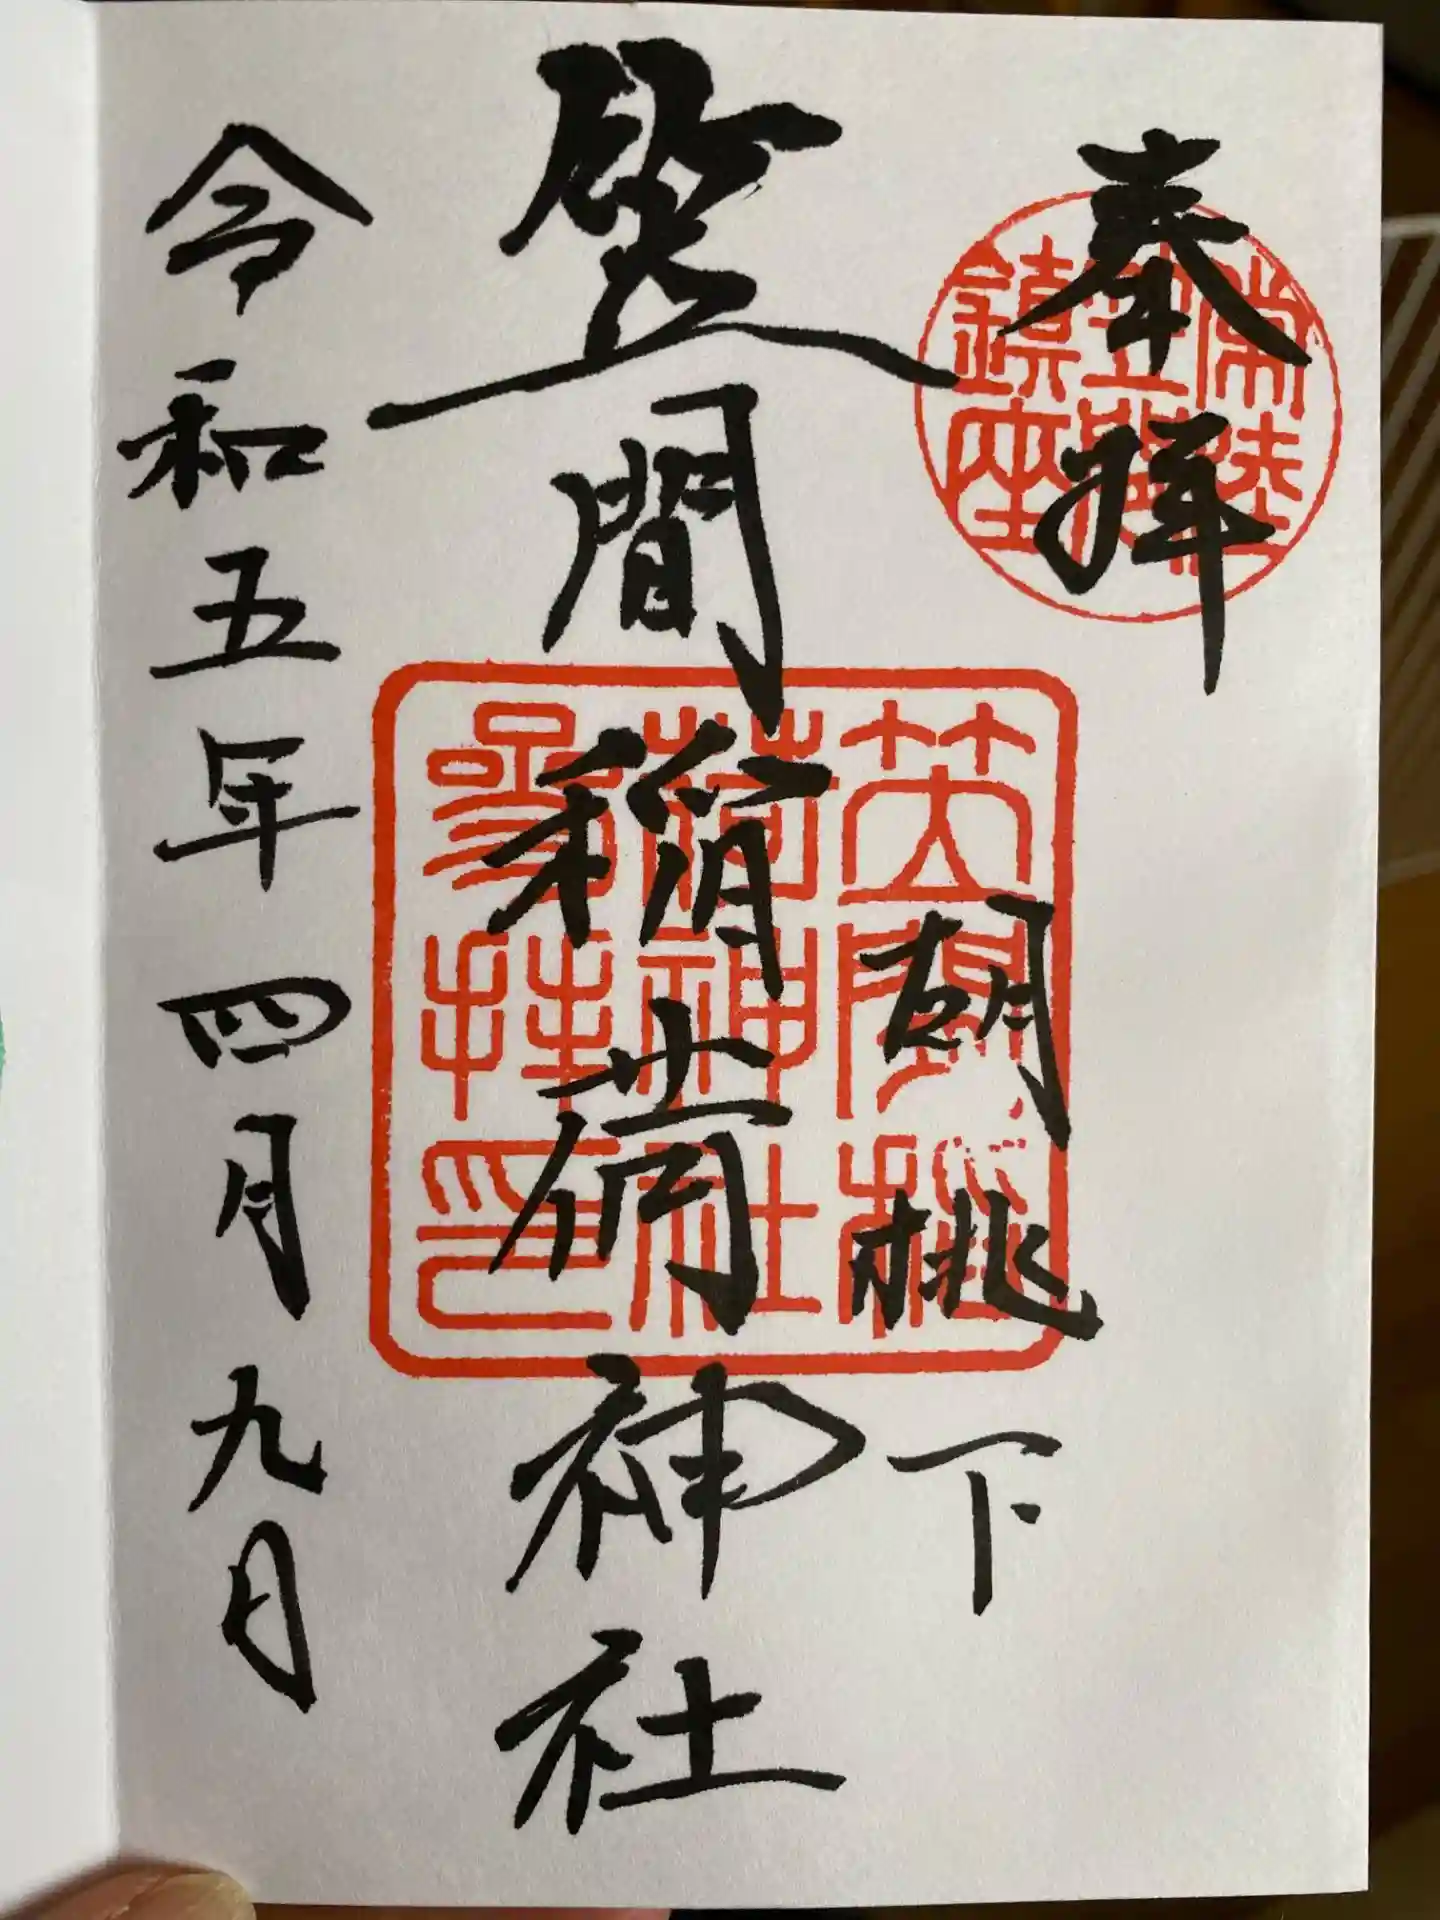 奉拝
常陸
笠間
鎮座
胡桃下
笠間稲荷神社
笠間稲
荷神社
参拝印
令和五年四月九日